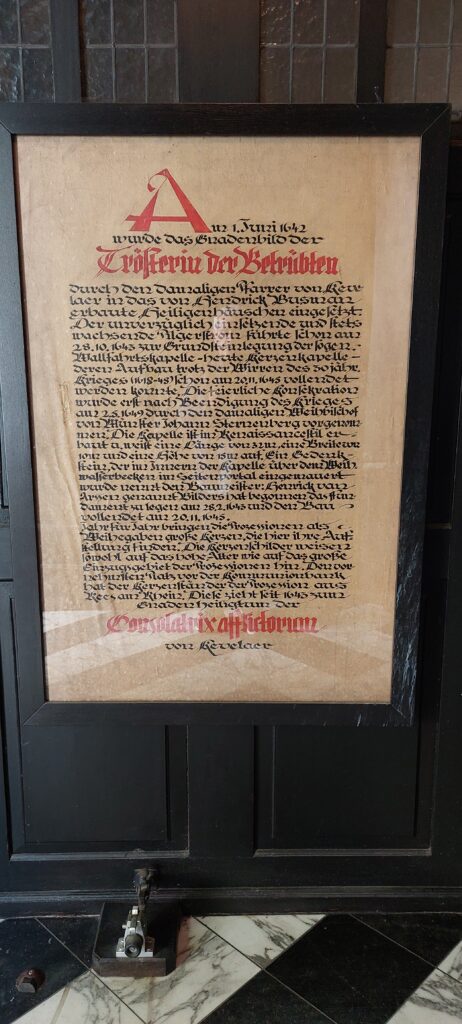 Am 1. Juni 1642
wurde das Gnadenbild der
Trösterin der Betrübten
durch den damaligen Pfarrer von Keve
laer in das von Hendrick Busman
erbaute Heiligenhäuschen eingesetzt.
Der unverzüglich einsetzende und stets
wachsende Pilgerstrom führte schon am
28.10.1643 zur Grundsteinlegung der sogen.
Wallfahrtskapelle - heute Kerzenkapelle -
deren Aufbau trotz der Wirren des 30 jähr.
Krieges (1618-48) schon am 20.11.1645 vollendet
werden konnte. Die feierliche Konsekration
wurde erst nach Beendigung des Krieges
am 2.5.1649 durch den damaligen Weihbischof
von Münster Johann Sternenberg vorgenom
men. Die Kapelle ist im Renaissancestil er-
baut u. weist eine Länge von m, eine Breite von
10m und eine Höhe von 18m auf. Ein Gedenk-
stein, der im Innern der Kapelle über dem Weih
wasserbecken im Seitenportal eingemauert
wurde nennt den Baumeister: Henrick van
Arssen genannt Bilders hat begonnen das Fun
dament zu legen am 28.2.1643 und den Bau
vollendet am 20.11.1645.
Jahr für Jahr bringen die Prozessionen als
Weihegaben große Kerzen, die hier ihre Auf
stellung finden. Die Kerzenschilder weisen
sowohl auf das hohe Alter wie auf das große
Einzugsgebiet der Prozessionen hin. Den vor
nehmsten Platz vor der Kommunionbank
hat der Kerzenständer der Prozession aus
Rees am Rhein. Diese zieht seit 1643 zum
Gnadenheiligtum der
Consolatrix afflictorum
von Kevelaer